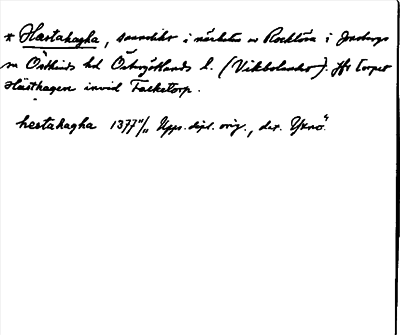 * Hæstahagha, sannolikt i närheten av Rocklösa i Jonsbergs
sn Östkinds hd Östergötlands l. (Vikbolandet). Jfr torpet
Hästhagen invid Falketorp.
hestahagha 1377 4/11 Upps. dipl. orig., der. Yxnö.